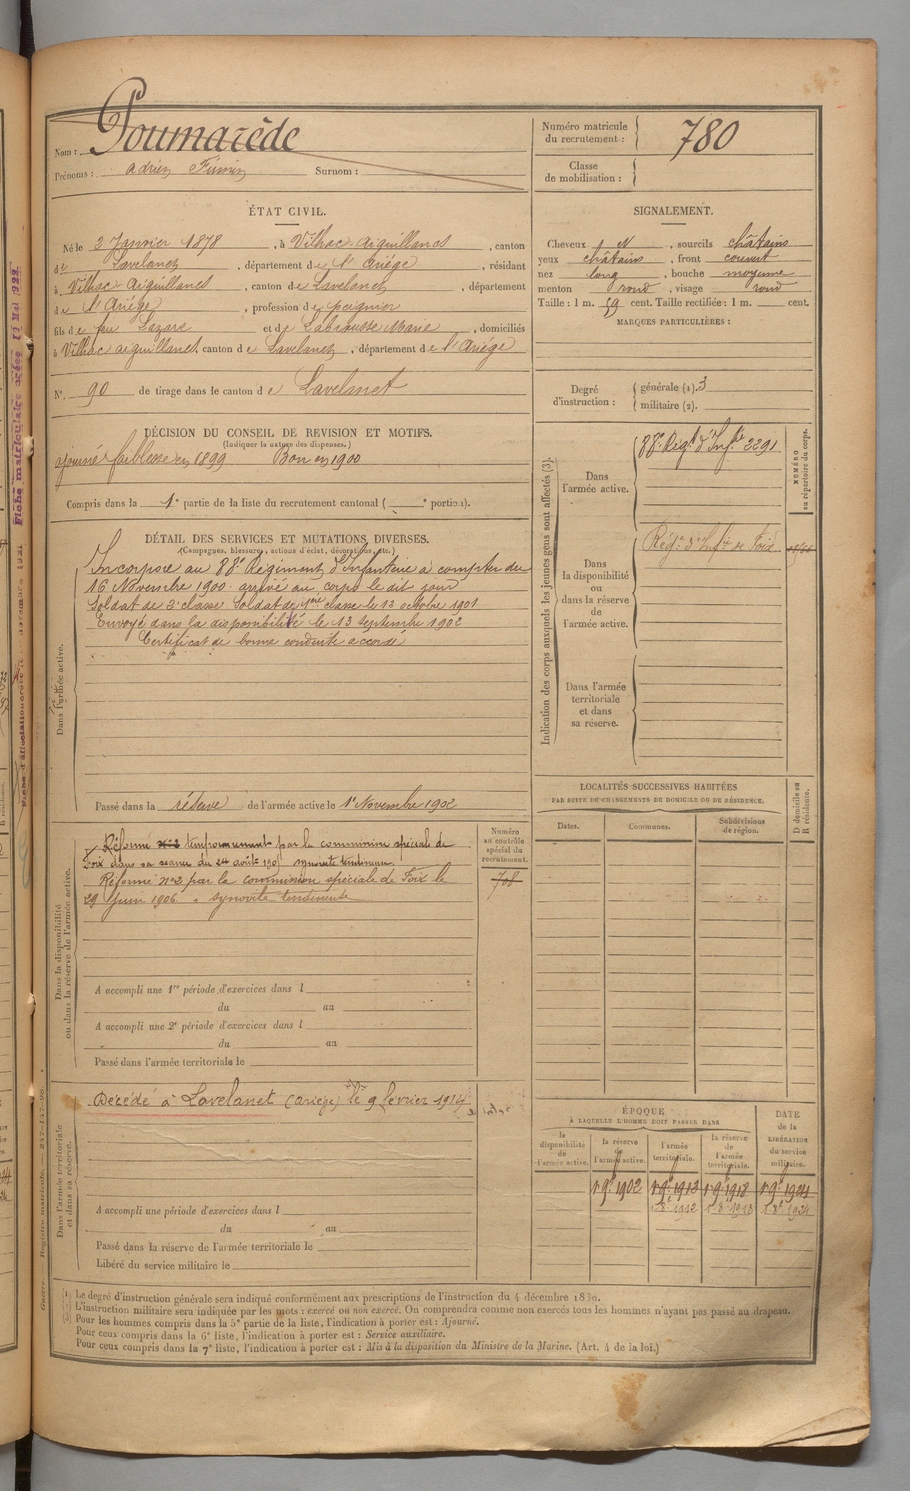 Nom : Poumarède
Prénoms : Adrien Firmin Surnom :
Numéro matricule du recrutement : 780
Classe de mobilisation :
ÉTAT CIVIL.
Né le 2 Janvier 1878, à Vilhac-Aiguillanes, canton
de Lavelanet, département de l'Ariége, résidant
à Vilhac-Aiguillanes, canton de Lavelanet, département
de l'Ariége, profession de peignier
fils de feu Lazare et de Labrousse Marie, domiciliés
à Vilhac aiguillanes, canton de Lavelanet, département de l'Ariége
N° 90 de tirage dans le canton de Lavelanet
SIGNALEMENT.
Cheveux N, sourcils châtains
yeux châtains, front couvert
nez long, bouche moyenne
menton rond, visage rond
Taille : 1 m. 59 cent. Taille rectifiée : 1 m. cent.
MARQUES PARTICULIÈRES :
Degré d'instruction : générale (1). 3
militaire (2).
DÉCISION DU CONSEIL DE REVISION ET MOTIFS.
(Indiquer la nature des dispenses.)
ajourné faiblesse en 1899 Bon en 1900
Compris dans la 1e partie de la liste du recrutement cantonal ( e portion).
DÉTAIL DES SERVICES ET MUTATIONS DIVERSES.
(Campagnes, blessures, actions d'éclat, décorations, etc.)
Dans l'armée active.
Incorporé au 88e Régiment d'Infanterie à compter du
16 Novembre 1900. arrivé au corps le dit jour
Soldat de 2e classe Soldat de 1ère classe le 13 octobre 1901
Envoyé dans la disponibilité le 13 septembre 1902
Certificat de bonne conduite accordé
Passé dans la réserve de l'armée active le 1er Novembre 1902
Indication des corps auxquels les jeunes gens sont affectés (3).
NUMÉRO au répertoire du corps.
Dans l'armée active.
88e Régt d'Infie 2291
Dans la disponibilité ou dans la réserve de l'armée active.
Régt d'Infie de Foix
Dans l'armée territoriale et dans sa réserve.
Dans la disponibilité ou dans la réserve de l'armée active.
Réformé temporairement par la commission spéciale de
Foix dans sa séance du 24 août
Réformé n°2 par la commission spéciale de Foix le
29 Juin 1906 synovite tendineuse
Numéro au contrôle spécial du recrutement.
708
A accompli une 1re période d'exercices dans l
du au
A accompli une 2e période d'exercices dans l
du au
Passé dans l'armée territoriale le
LOCALITÉS SUCCESSIVES HABITÉES
PAR SUITE DE CHANGEMENTS DE DOMICILE OU DE RÉSIDENCE.
Dates. Communes. Subdivisions de région. D domicile ou R résidence.
Dans l'armée territoriale et dans sa réserve.
Décédé à Lavelanet (Ariège) le 9 février 1914
A accompli une période d'exercices dans l
du au
Passé dans la réserve de l'armée territoriale le
Libéré du service militaire le
ÉPOQUE
À LAQUELLE L'HOMME DOIT PASSER DANS
DATE de la LIBÉRATION du service militaire.
la disponibilité de l'armée active. la réserve de l'armée active. l'armée territoriale. la réserve de l'armée territoriale.
1er 9e 1902 1er 9e 1912 1er 9e 1918 1er 9e 1924
1er 8e 1912 1er 8e 1918 1er 8e 1924
(1) Le degré d'instruction générale sera indiqué conformément aux prescriptions de l'instruction du 4 décembre 1889.
(2) L'instruction militaire sera indiquée par les mots : exercé ou non exercé. On comprendra comme non exercés tous les hommes n'ayant pas passé au drapeau.
(3) Pour les hommes compris dans la 5e partie de la liste, l'indication à porter est : Ajourné.
Pour ceux compris dans la 6e liste, l'indication à porter est : Service auxiliaire.
Pour ceux compris dans la 7e liste, l'indication à porter est : Mis à la disposition du Ministre de la Marine. (Art. 4 de la loi.)